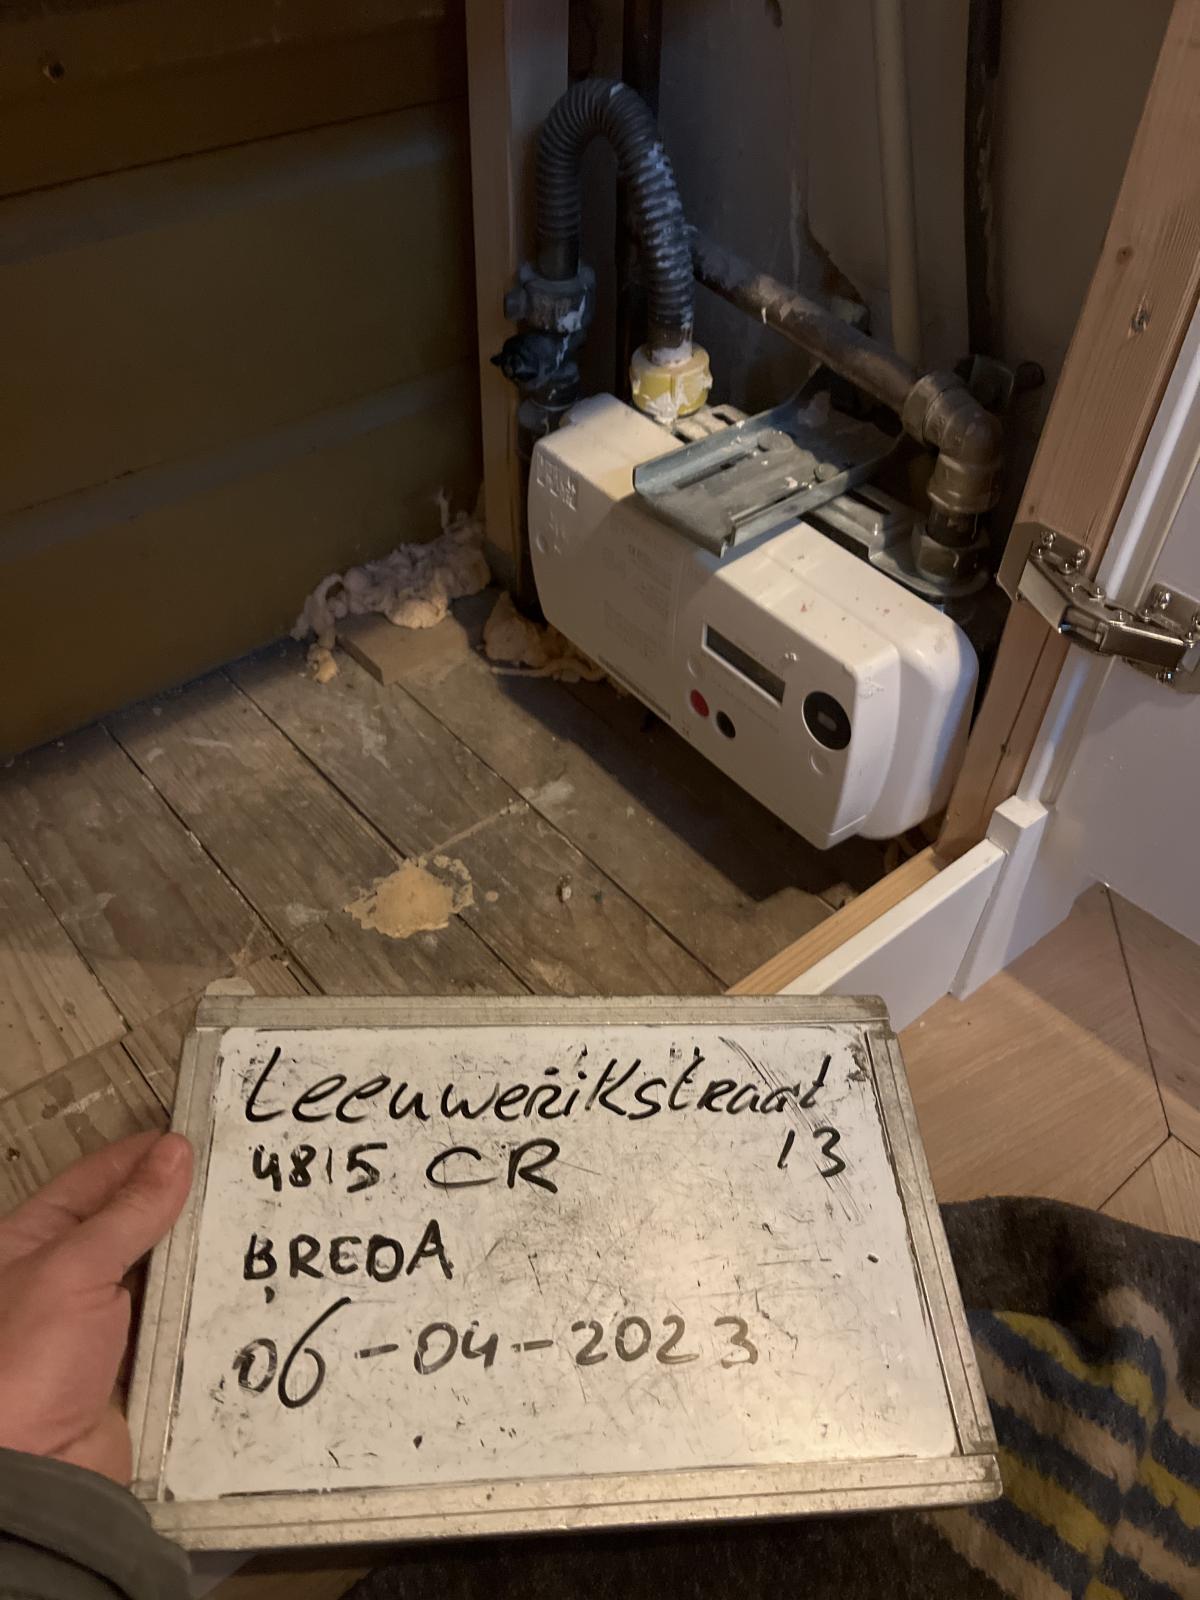 Leeuwerikstraat
4815 CR 13
BREDA
06-04-2023